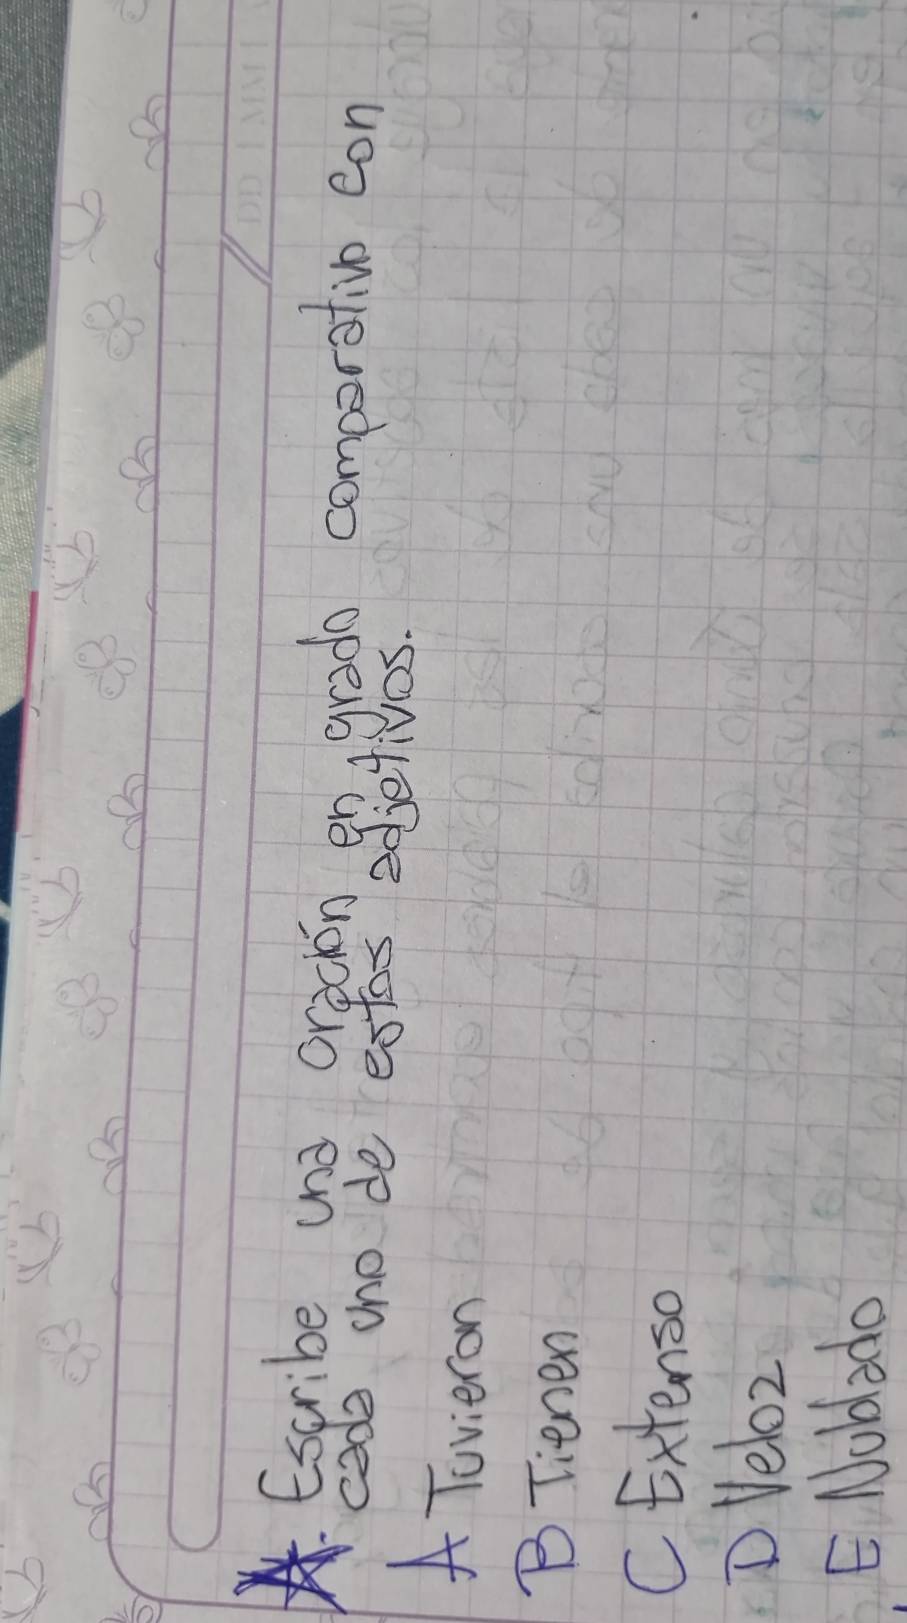 DD / MM /
Escribe una oración en grado comparativo con
cada uno de estos adjetivos.
A Tuvieron
B Tienen
C Extenso
D Veloz
E Nublado